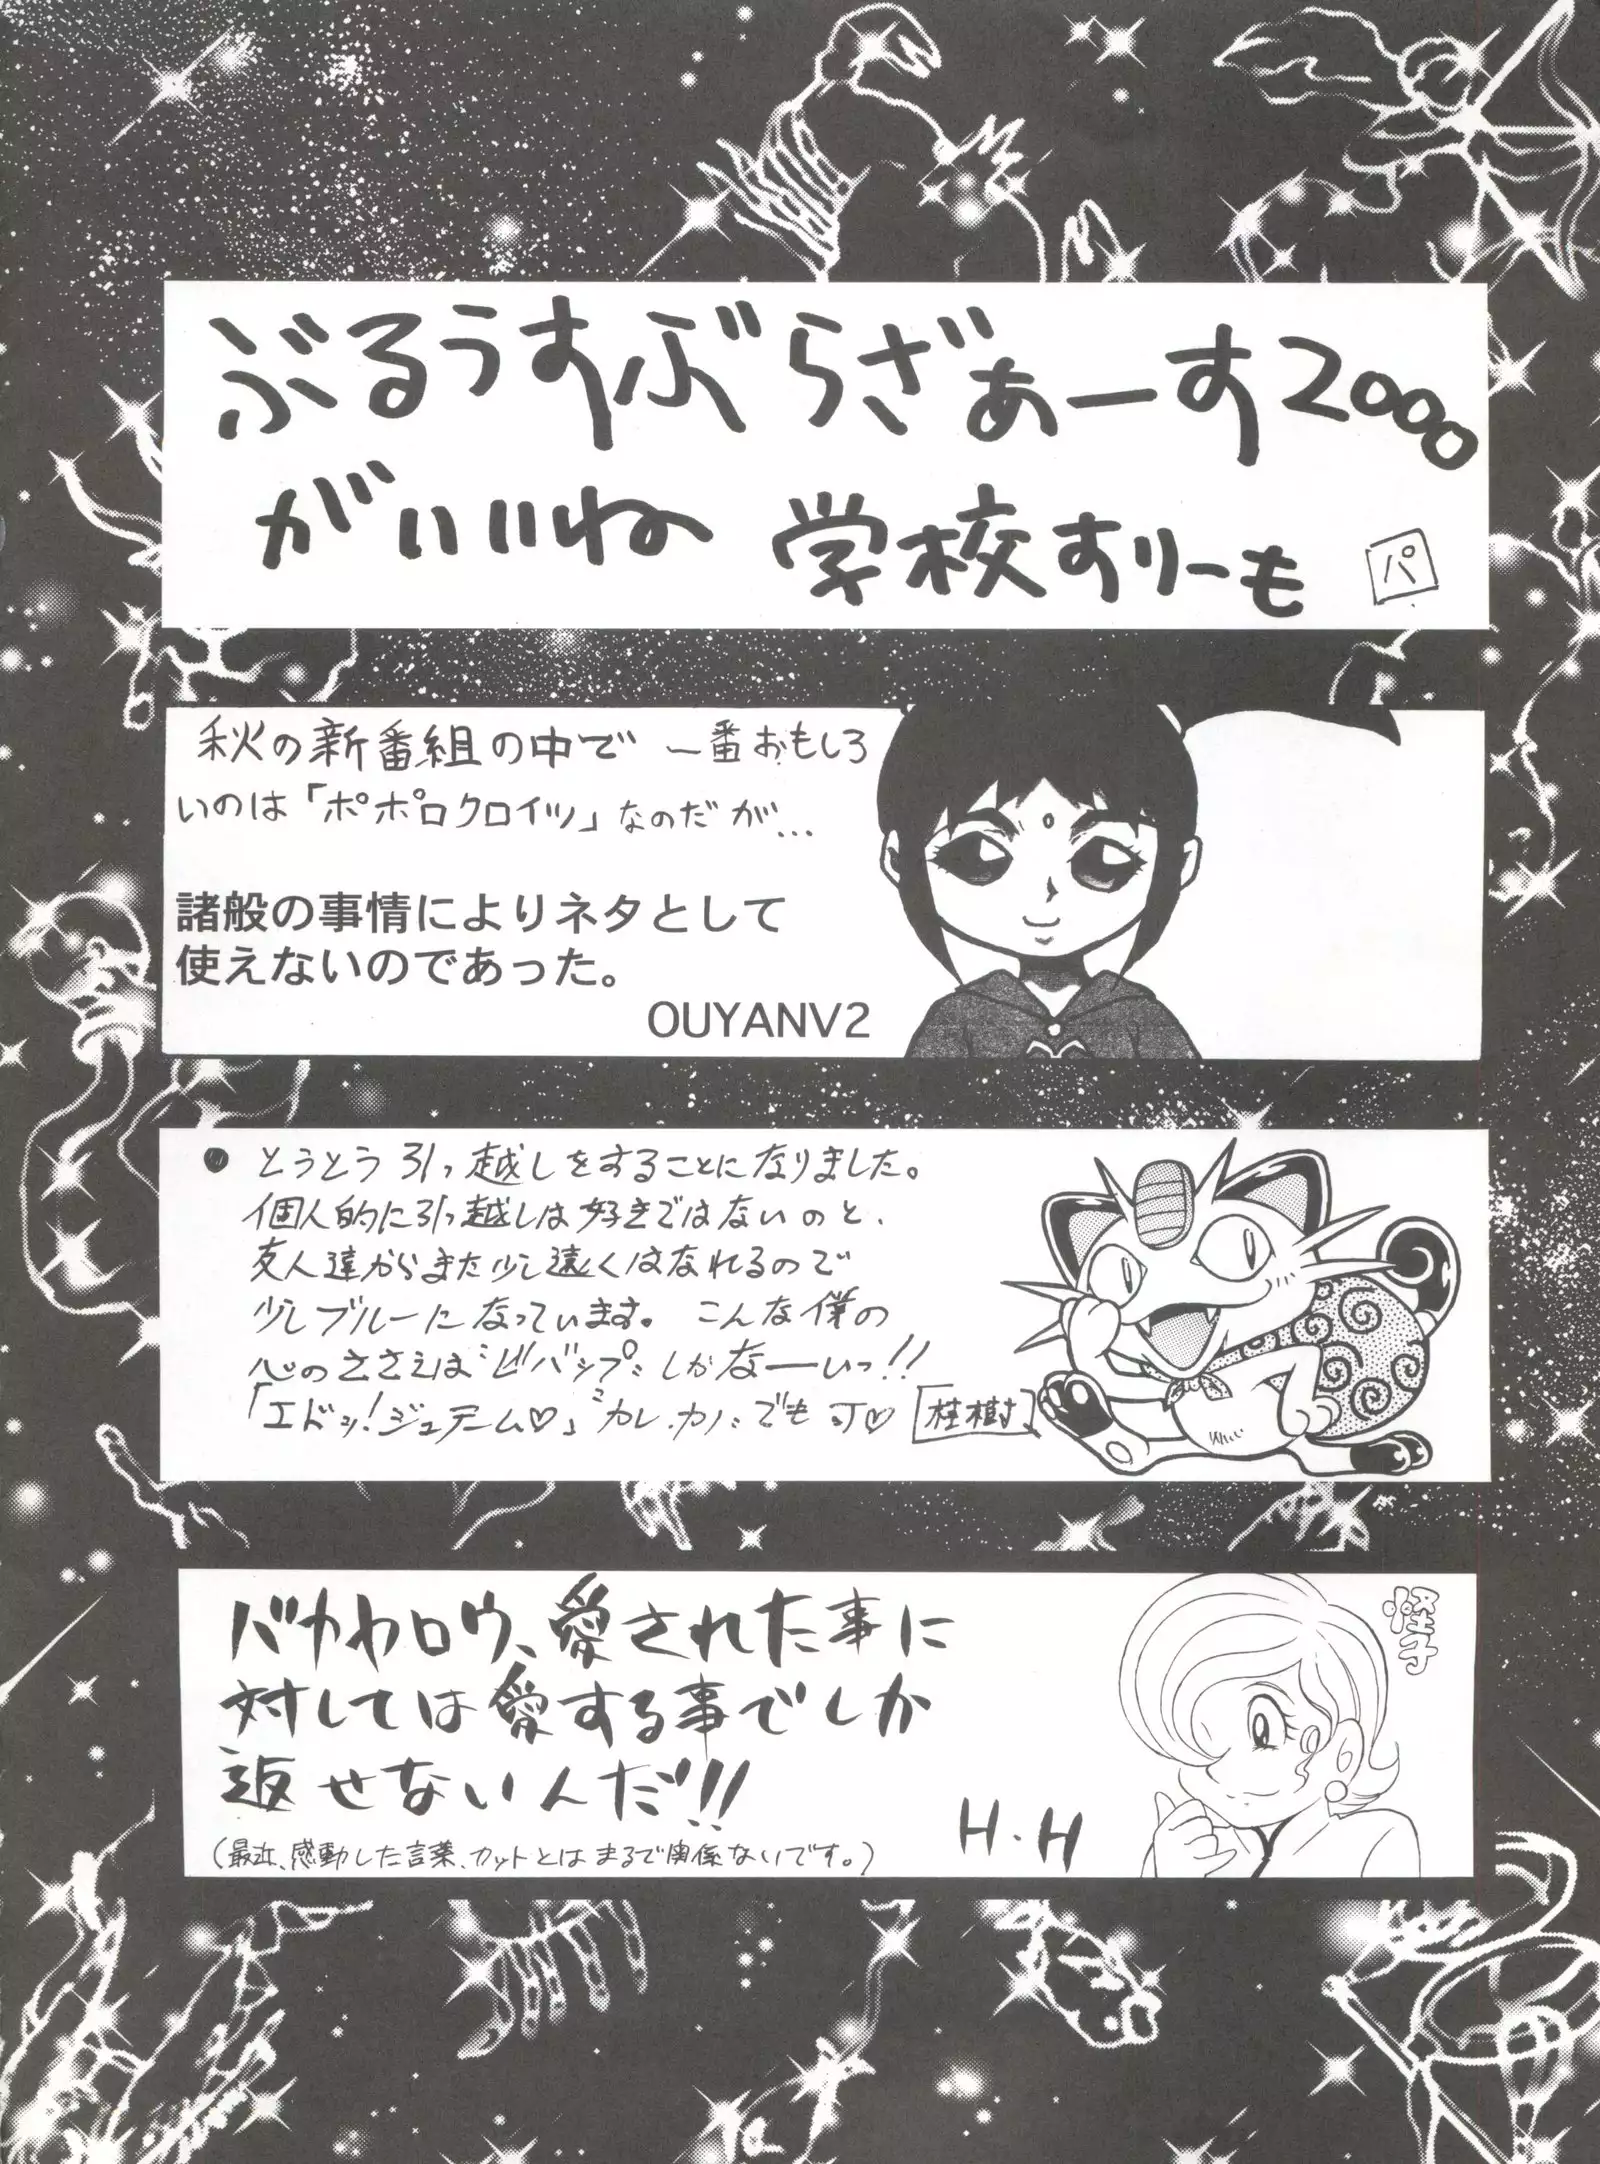 ぶるうすぶらざぁーす2000
がいいね 学校すりーも
パ
秋の新番組の中で 一番おもしろ
いのは「ポポロクロイツ」なのだが...
諸般の事情によりネタとして
使えないのであった。
OUYANV2
● とうとう引っ越しをすることになりました。
個人的に引っ越しは好きではないのと、
友人達からまた少し遠くはなれるので
少しブルーになっています。 こんな僕の
心のささえは〝ビバップ〟しかなーいっ!!
「エドッ!ジュテーム♡」〝カレ.カノ〟でも可♡ [桂樹]
バカヤロウ、愛された事に
対しては愛する事でしか
返せないんだ!!
(最近、感動した言葉、カットとはまるで関係ないです。)
H.H
怪子